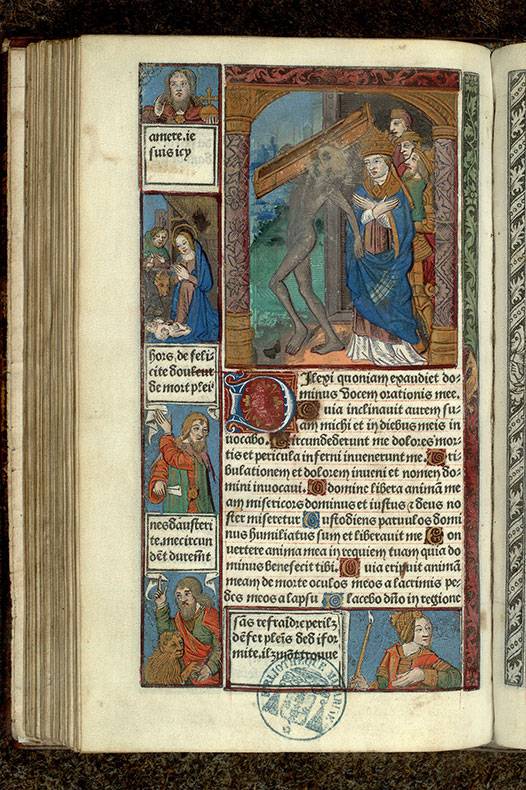 amere. ie
suis icy
hors, de feli-
cite doulcut
de mort plei
nes dauſterr
te, me circun
dēt durem̄t
Ilexi quoniam exaudiet do-
minus vocem orationis mee.
Quia inclinauit aurem su-
am michi et in diebus meis in
uocabo. Circundederunt me dolores mor-
tis et pericula inferni inuenerunt me. Tri
bulationem et dolorem inueni et nomen do-
mini inuocaui. O domine libera animā me
am misericors dominus et iustus et deus no
ster miseretur. Custodiens paruulos domi
nus humiliatus sum et liberauit me. Con
uertere anima mea in requiem tuam quia do
minus benefecit tibi. Quia eripuit animā
meam de morte oculos meos a lacrimis pe-
des meos a lapsu. Placebo dn̄o in regione
sās refraīdre perilz
dēfer pleīs de difor
mite, ilz mōt trouue
BIBLIOTHEQUE